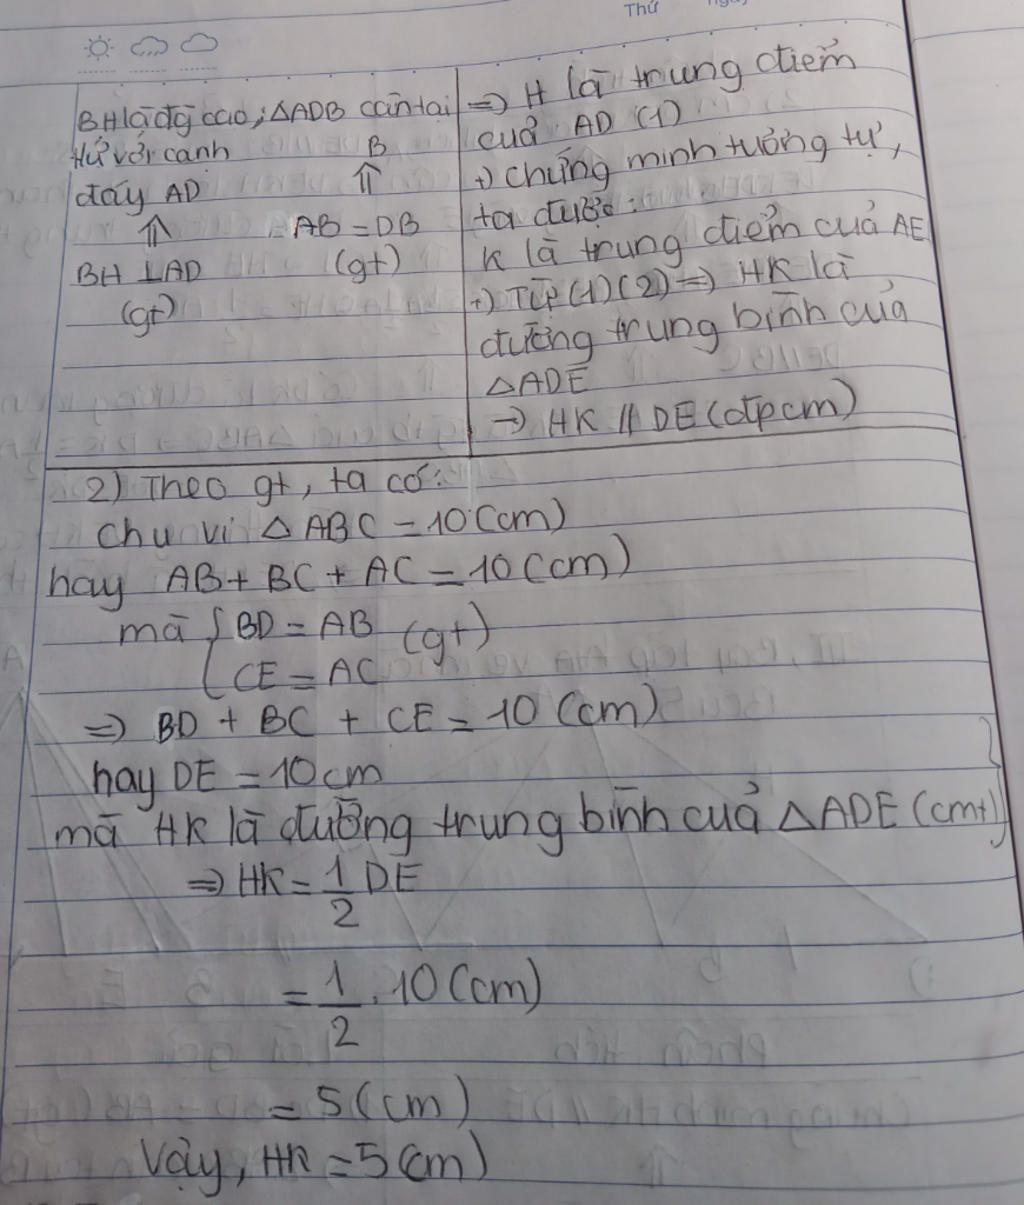 Thứ
BH là đg cao; △ADB cân tại
từ với cạnh B
đáy AD ⇑
⇑ AB = DB
BH ⊥ AD (gt)
(gt)
=> H là trung điểm
của AD (1)
+) chứng minh tương tự,
ta được:
K là trung điểm của AE
+) Từ (1) (2) => HK là
đường trung bình của
△ADE
-> HK // DE (đpcm)
2) Theo gt, ta có:
chu vi △ ABC = 10 (cm)
hay AB + BC + AC = 10 (cm)
mà { BD = AB (gt)
CE = AC
=> BD + BC + CE = 10 (cm)
hay DE = 10cm
mà HK là đường trung bình của △ADE (cmt)
=> HK = 1/2 DE
= 1/2 . 10 (cm)
= 5 (cm)
Vậy, HK = 5 (cm)